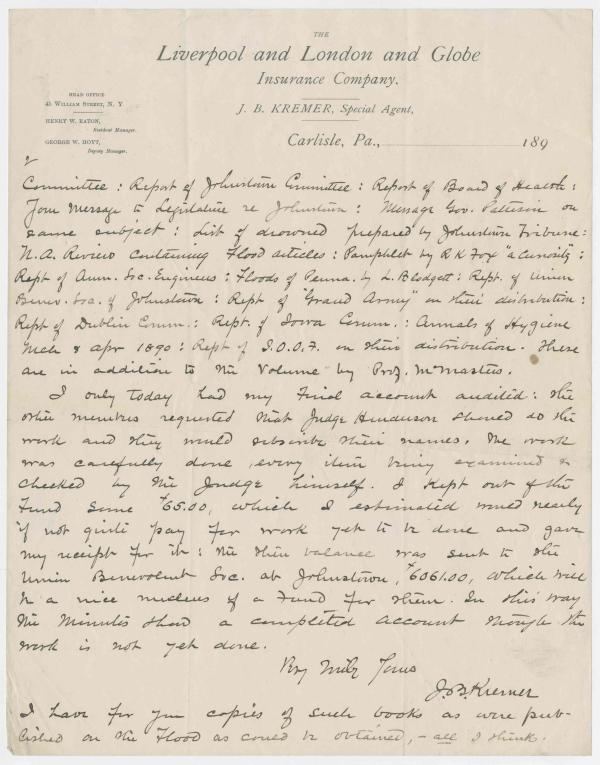 THE
Liverpool and London and Globe
Insurance Company.
HEAD OFFICE
45 WILLIAM STREET, N. Y.
HENRY W. EATON,
Resident Manager.
GEORGE W. HOYT,
Deputy Manager.
J. B. KREMER, Special Agent,
Carlisle, Pa., 189
Committee : Report of Johnstown Committee : Report of Board of Health :
Your Message to Legislature re Johnstown : Message Gov. Pattison on
same subject : List of drowned prepared by Johnstown Tribune :
N.A. Review containing Flood articles : Pamphlet by R K Fox "a Curiosity" :
Rept of Amn. Soc. Engineers : Floods of Penna. by L. Blodgett : Rept. of Union
Benev. Soc. of Johnstown : Rept of "Grand Army" on their distribution :
Rept of Dublin Comm. : Rept. of Iowa Comm. : Annals of Hygiene
Mch & Apr 1890 : Rept of I.O.O.F. on their distribution. These
are in addition to the Volume by Prof. McMasters.
I only today had my Final account audited : the
other members requested that Judge Henderson should do the
work and they would subscribe their names. The work
was carefully done, every item being examined &
checked by the Judge himself. I kept out of the
Fund some $65.00, which I estimated would nearly
if not quite pay for work yet to be done and gave
my receipt for it : the then balance was sent to the
Union Benevolent Soc. at Johnstown, $6061.00, which will
be a nice nucleus of a Fund for them. In this way
the Minutes show a completed account though the
work is not yet done.
Very truly Yours
J. B. Kremer
I have for you copies of such books as were pub-
lished on the Flood as could be obtained, - all I think.